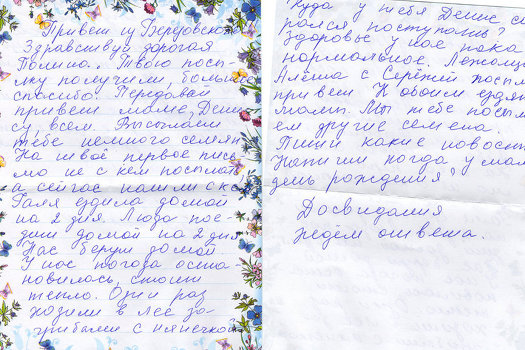 Привет из Бердовска
Здравствуй дорогая
Полина. Твою посы-
лку получили, большое
спасибо. Передавай
привет маме, Дени-
су, всем. Высылаем
тебе немного семян.
На твоё первое пись-
мо не с кем послать,
а сейчас нашли с кем
Галя ездила домой
на 2 дня. Люда пое-
дит домой на 2 дня
Нас берут домой.
У нас погода оста-
новилась, стоит
тепло. Один раз
ходили в лес за
грибами с нянечкой
Куда у тебя Денис
рался поступить?
Здоровье у нас пока
нормальное.
Алёша с Серёжей
привет. К обоим ездят
мамы. Мы тебе посыла
ем другие семена.
Пиши какие новости
Напиши когда у мамы
день рождения?
Досвидания
ждём ответа.